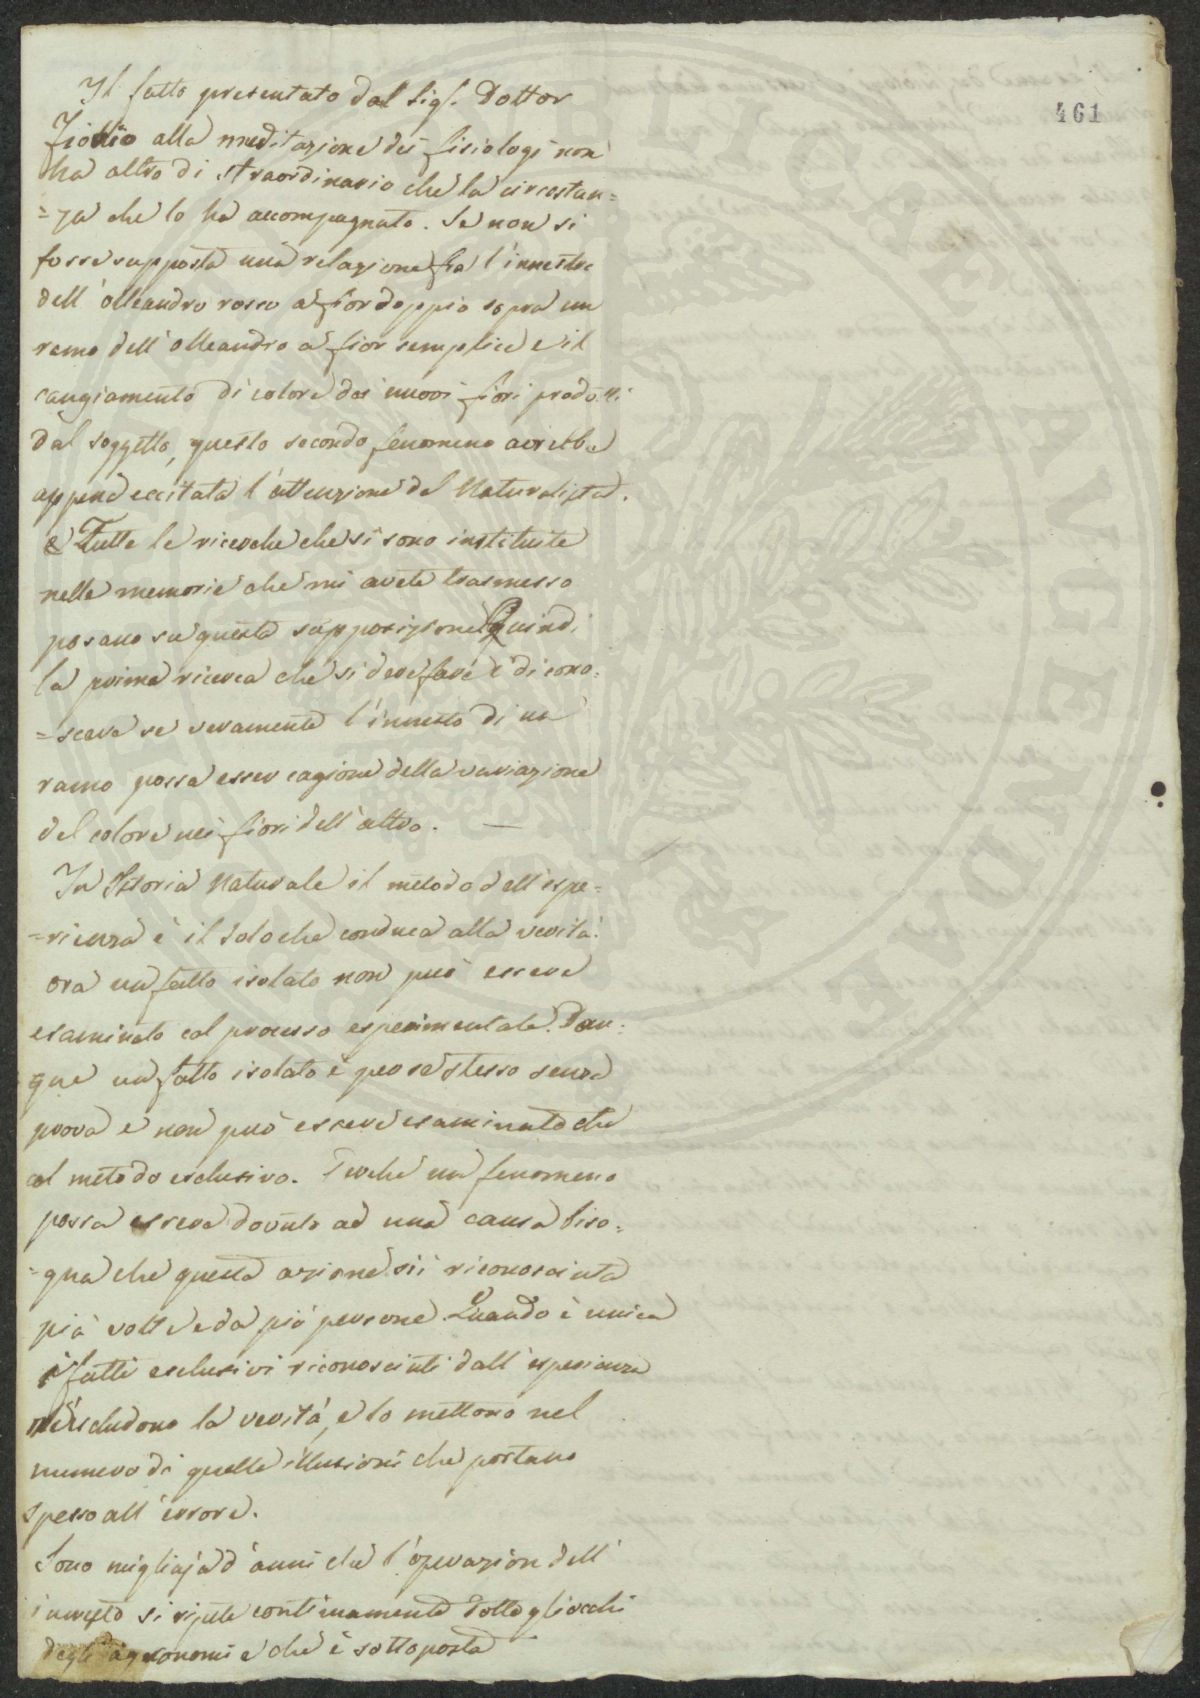 461
Il fatto presentato dal Sig.r Dottor
alla meditazione dei fisiologi non
ha altro di straordinario che la circostan=
=za che lo ha accompagnato. Se non si
fosse supposta una relazione fra l'innesto
dell'olleandro rosso a fior doppio sopra un
ramo dell'olleandro a fior semplice e il
cangiamento di colore dei nuovi fiori prodotti
dal soggetto, questo secondo fenomeno avrebbe
appena eccitata l'attenzione del Naturalista.
Tutte le ricerche che si sono instituite
nelle memorie che mi avete trasmesso
posano su questa supposizione Quindi
la prima ricerca che si deve fare è di cono=
=scere se veramente l'innesto di un
ramo possa esser cagione della variazione
del colore nei fiori dell'altro. —
In Istoria Naturale il metodo dell'espe=
=rienza è il solo che conduca alla verità.
ora un fatto isolato non può essere
esaminato col processo esperimentale. Dun=
que un fatto isolato è per se stesso senza
prova e non può essere esaminato che
col metodo esclusivo. Perche un fenomeno
possa essere dovuto ad una causa biso=
=gna che questa azione sii riconosciuta
più volte e da più persone. Quando è unica
i fatti esclusivi riconosciuti dall'esperienza
n'escludono la verità, e lo mettono nel
numero di quelle illusioni che portano
spesso all'errore.
Sono migliaja d'anni che l'operazion dell'
innesto si ripete continuamente sotto gli occhi
degli agronomi e che è sottoposta